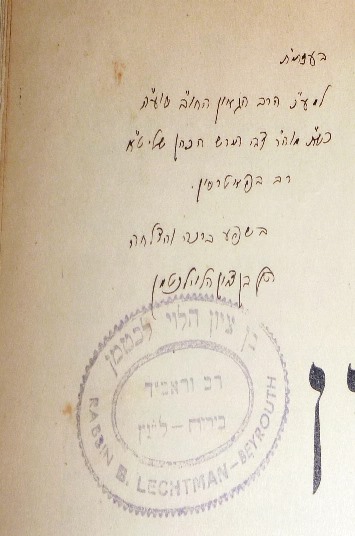 בעזהי"ת
למע"כ הרב הגאון החו"ב סוע"ה
כש"ת מוהר צבי הירש הכהן שליט"א
רב
בשפע ברכה והצלחה
בן ציון הלוי ליכטמן
בן ציון הלוי ליכטמן
רב וראב״ד
בירות – לבנון
RABBIN B. LECHTMAN – BEYROUTH